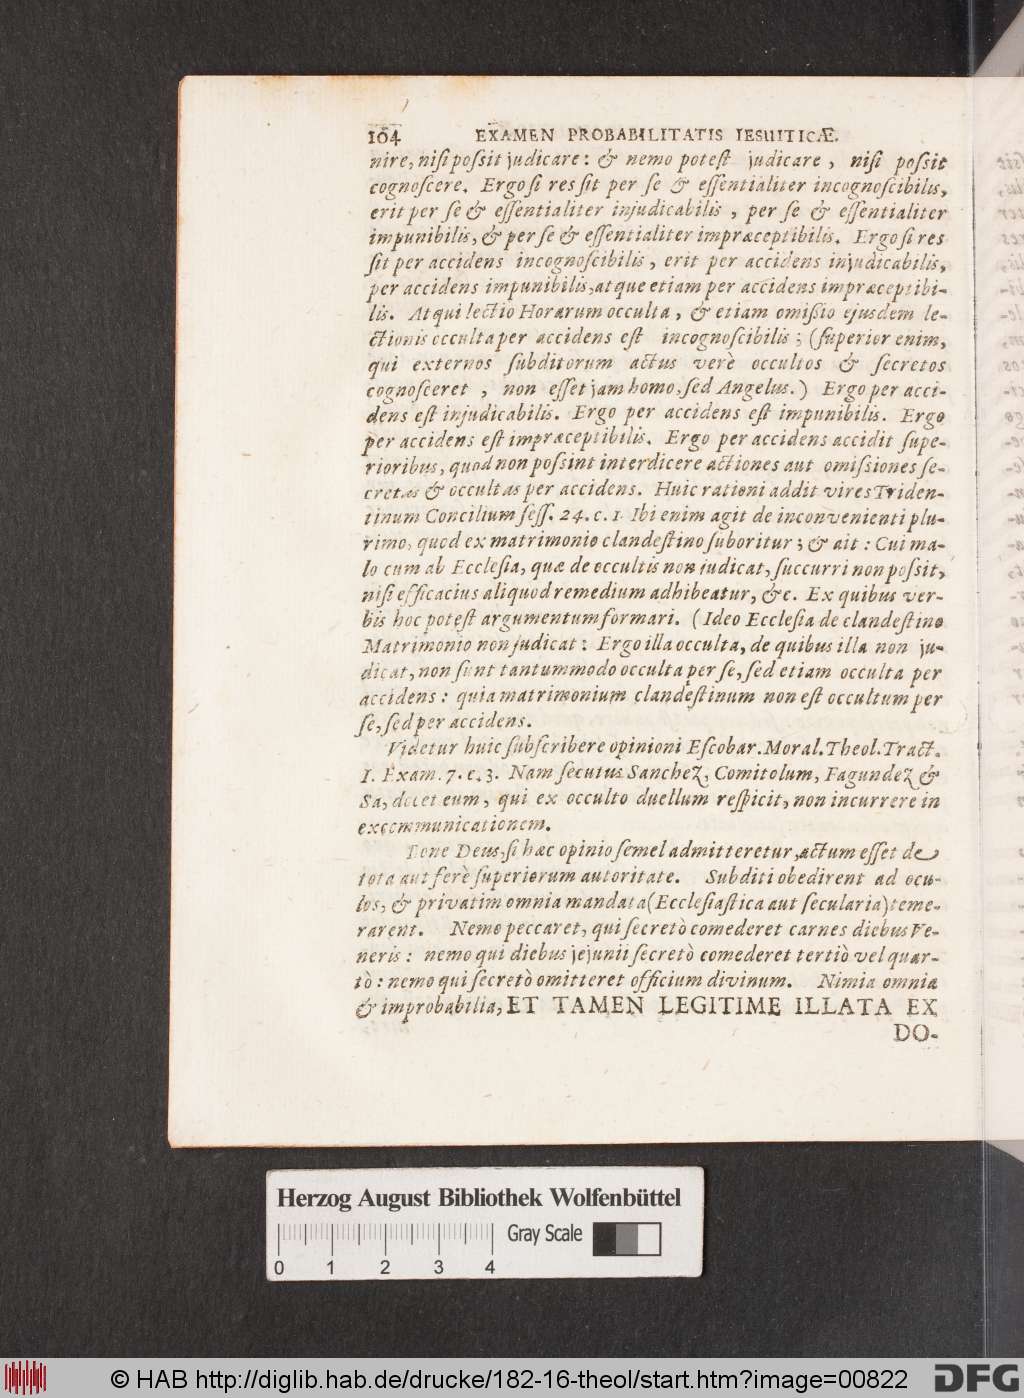 104 EXAMEN PROBABILITATIS IESUITICÆ.
nire, niſi poſsit judicare: & nemo poteſt judicare, niſi poſsit
cognoſcere. Ergo ſi res ſit per ſe & eſſentialiter incognoſcibilis,
erit per ſe & eſſentialiter injudicabilis, per ſe & eſſentialiter
impunibilis, & per ſe & eſſentialiter impræceptibilis. Ergo ſi res
ſit per accidens incognoſcibilis, erit per accidens injudicabilis,
per accidens impunibilis, atque etiam per accidens impræceptibi-
lis. Atqui lectio Horarum occulta, & etiam omißio ejusdem le-
ctionis occulta per accidens eſt incognoſcibilis; (ſuperior enim,
qui externos ſubditorum actus verè occultos & ſecretos
cognoſceret, non eſſet jam homo, ſed Angelus.) Ergo per acci-
dens eſt injudicabilis. Ergo per accidens eſt impunibilis. Ergo
per accidens eſt impræceptibilis. Ergo per accidens accidit ſupe-
rioribus, quod non poſsint interdicere actiones aut omiſsiones ſe-
cretas & occultas per accidens. Huic rationi addit vires Triden-
tinum Concilium ſeſſ. 24. c. 1 Ibi enim agit de inconvenienti plu-
rimo, quod ex matrimonio clandeſtino ſuboritur; & ait: Cui ma-
lo cum ab Eccleſia, quæ de occultis non judicat, ſuccurri non poſsit,
niſi efficacius aliquod remedium adhibeatur, &c. Ex quibus ver-
bis hoc poteſt argumentum formari. (Ideo Eccleſia de clandeſtino
Matrimonio non judicat: Ergo illa occulta, de quibus illa non ju-
dicat, non ſunt tantummodo occulta per ſe, ſed etiam occulta per
accidens: quia matrimonium clandeſtinum non eſt occultum per
ſe, ſed per accidens.
Videtur huic ſubſcribere opinioni Eſcobar. Moral. Theol. Tract.
I. Exam. 7. c. 3. Nam ſecutus Sanchez, Comitolum, Fagundez &
Sa, docet eum, qui ex occulto duellum reſpicit, non incurrere in
excommunicationem.
Bone Deus, ſi hæc opinio ſemel admitteretur, actum eſſet de
tota aut ferè ſuperiorum autoritate. Subditi obedirent ad ocu-
los, & privatim omnia mandata (Eccleſiaſtica aut ſecularia) teme-
rarent. Nemo peccaret, qui ſecretò comederet carnes diebus Ve-
neris: nemo qui diebus jejunii ſecretò comederet tertiò vel quar-
tò: nemo qui ſecretò omitteret officium divinum. Nimia omnia
& improbabilia, ET TAMEN LEGITIME ILLATA EX
DO-
Herzog August Bibliothek Wolfenbüttel
Gray Scale
0 1 2 3 4
© HAB http://diglib.hab.de/drucke/182-16-theol/start.htm?image=00822
DFG